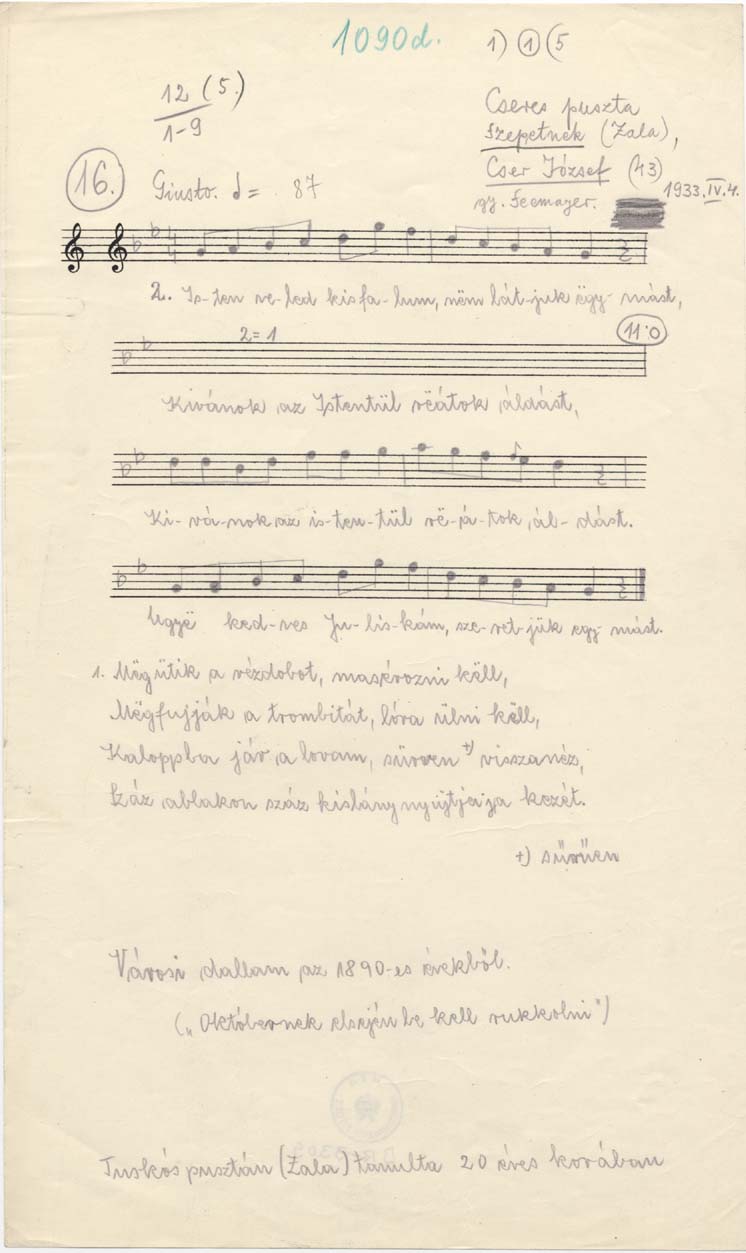 1090d.
1) ① (5
12 (5.)
1-9
Cseres puszta
Szepetnek (Zala),
Cser József (43)
gy. Seemayer.
1933.IV.4.
16.
Giusto. = 87
2. Is-ten ve-led kis fa-lum, nëm lát-juk ëgy-mást,
2=1
11·0
Kivánok az Istentül rëátok áldást,
Ki-vá-nok az is-ten-tül rë-á-tok ál-dást.
Ugyë ked-ves Ju-lis-kám, sze-ret-jük egy-mást.
1. Mëgütik a rézdobot, masérozni këll,
Mëgfujják a trombitát, lóra ülni këll,
Kaloppba jár a lovam, sürven +) visszanéz,
Száz ablakon száz kislány nyujtja kezét.
+) sűrűen
Városi dallam az 1890-es évekből.
(„Októbernek elsején be kell rukkolni")
Tuskós pusztán (Zala) tanulta 20 éves korában